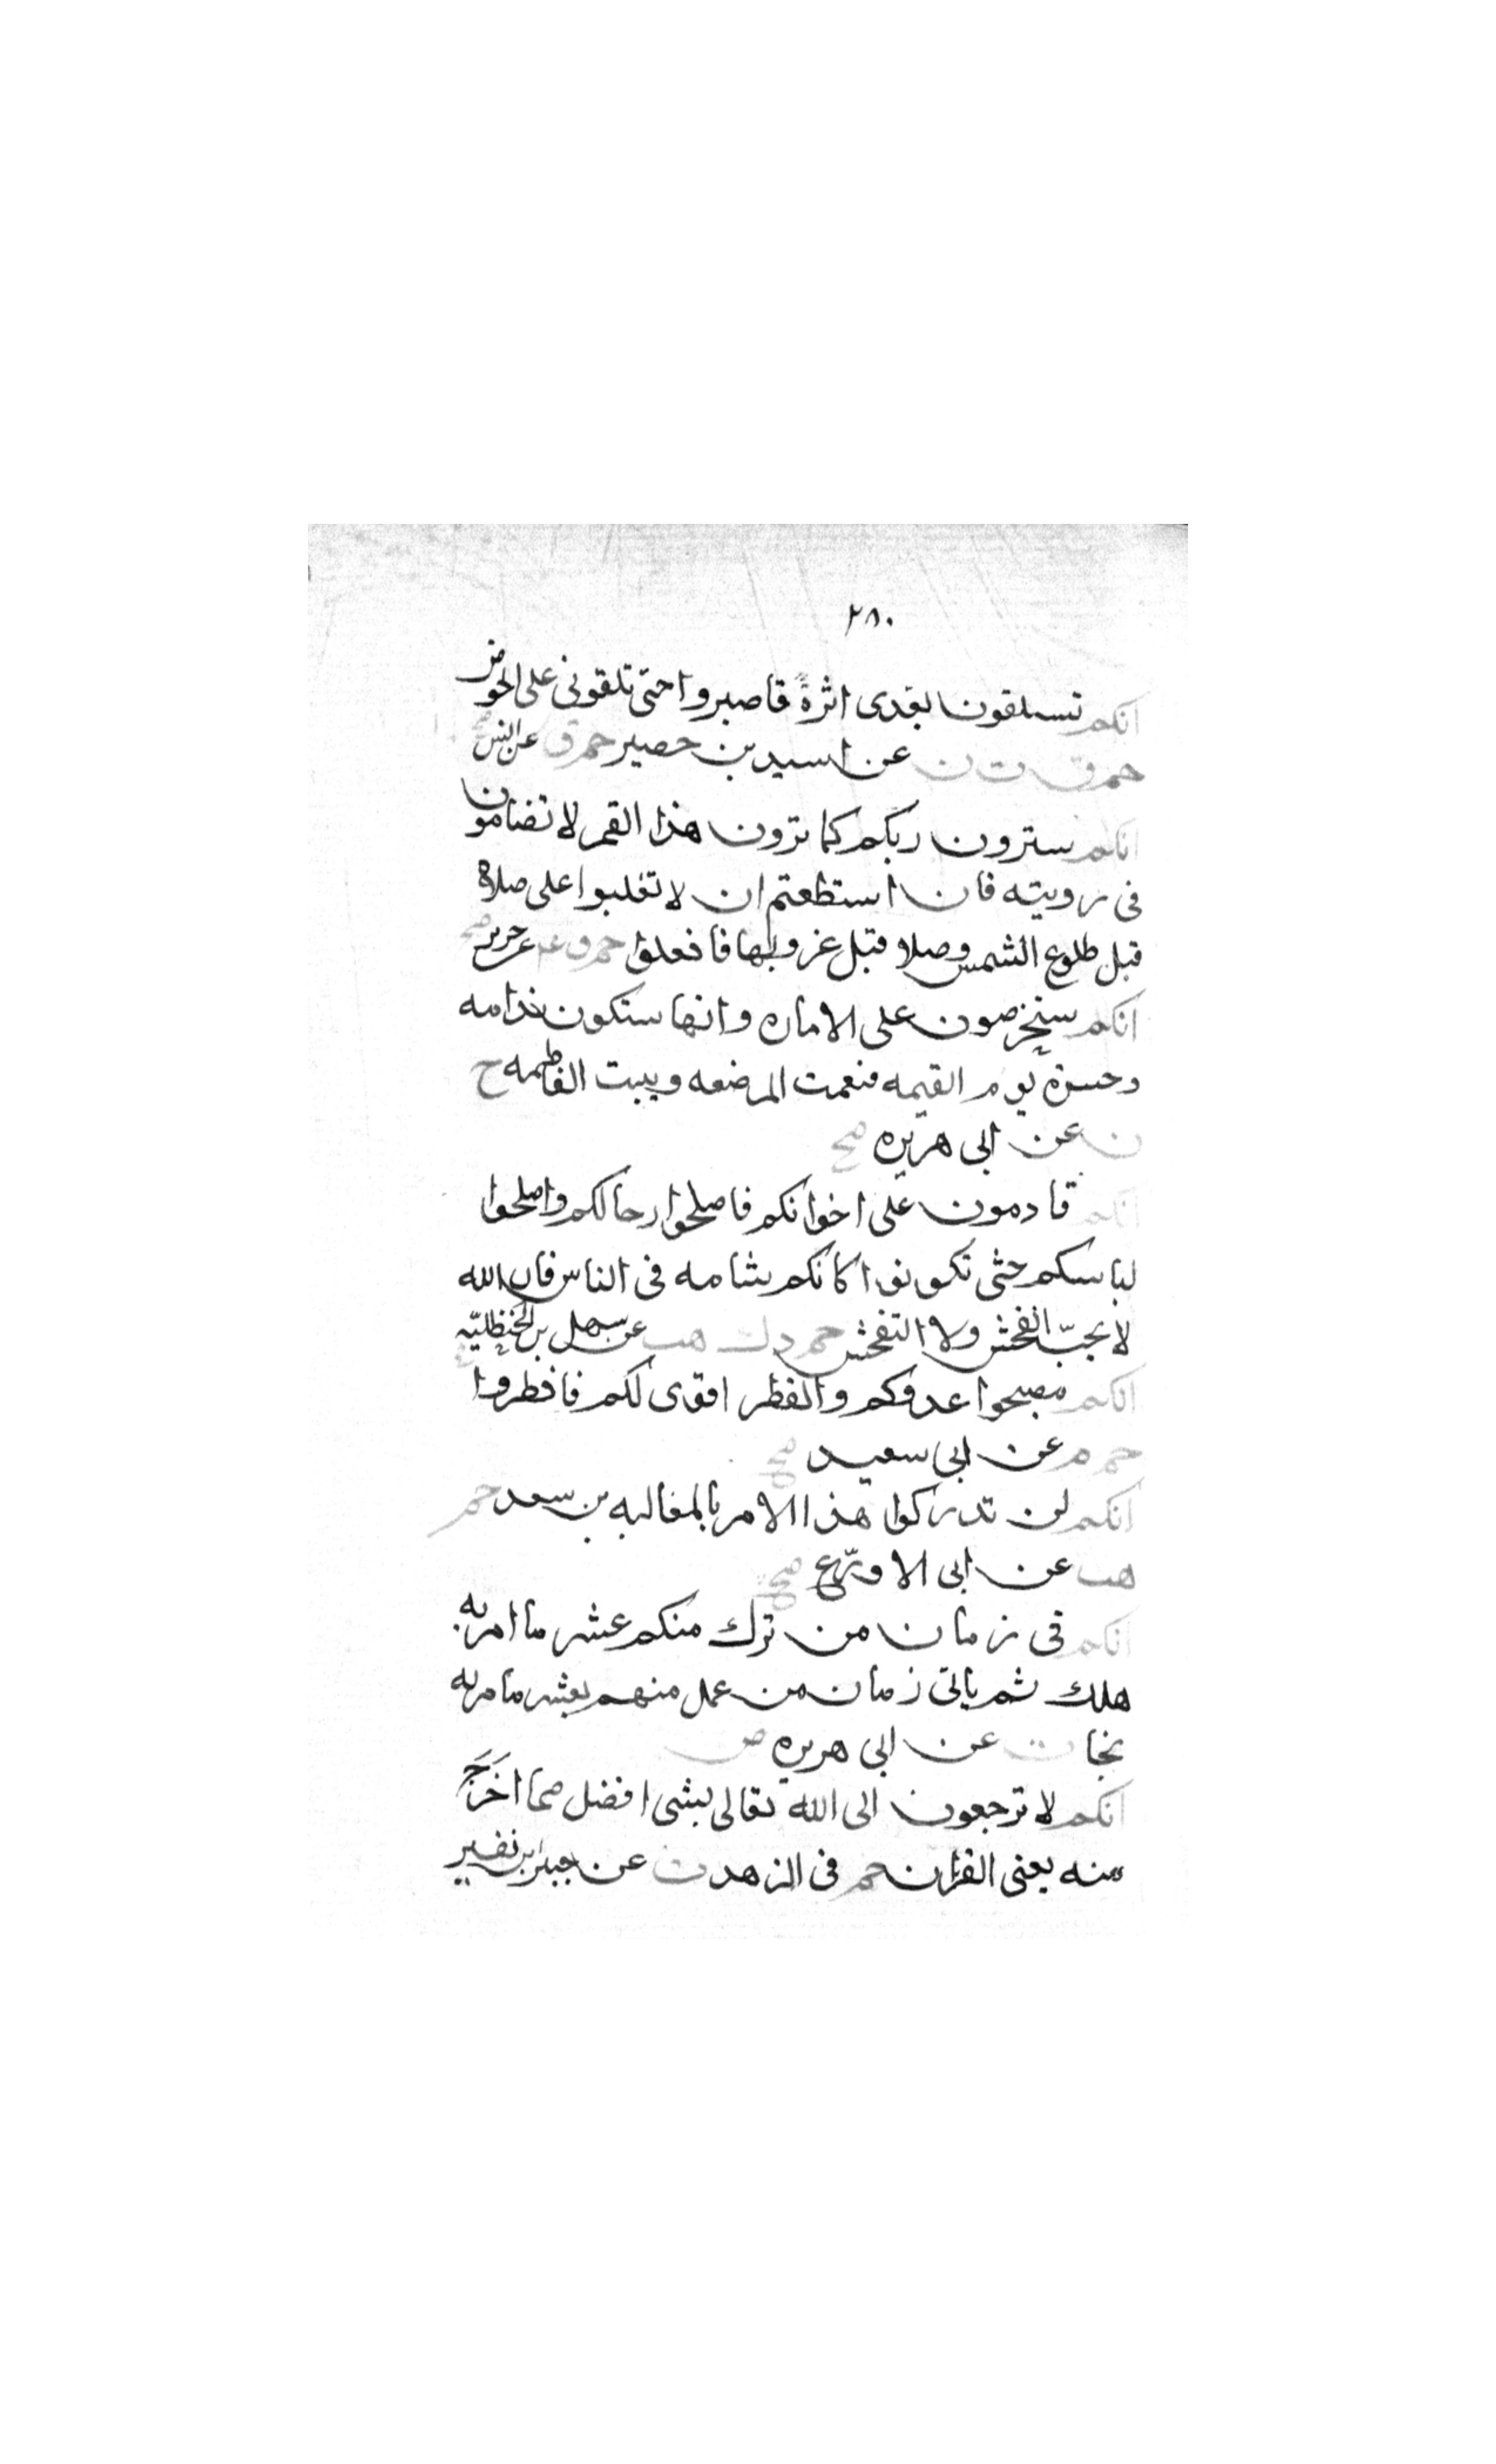 ٢٨٠
انكم تستلقون بعدى اثرة فاصبروا حتى تلقونى على الحوض
حم ق ت ن عن اسيد بن حصير حم ق عن انس صح
انكم سترون ربكم كما ترون هذا القمر لا تضامون
فى رويته فان استطعتم ان لا تغلبوا على صلاة
قبل طلوع الشمس وصلاة قبل غروبها فافعلوا حم ق عن جرير صح
انكم ستحرصون على الاماره وانها ستكون ندامه
وحسرة يوم القيمه فنعمت المرضعه وبيست الفاطمه ح
ن عن ابى هريره صح
انكم قادمون على اخوانكم فاصلحوا رحالكم واصلحوا
لباسكم حتى تكونوا كانكم شامه فى الناس فان الله
لا يحبّ الفحش ولا التفحش حم د ك هب عن سهل بن الحنظليّه
انكم مصبحوا عدوكم والفطر اقوى لكم فافطروا
حم م عن ابى سعيد صح
انكم لن تدركوا هذا الامر بالمغالبه بن سعد حم
هب عن ابى الاورع صح
انكم فى زمان من ترك منكم عشر ما امر به
هلك ثم ياتى زمان من عمل منهم بعشر ما مر به
نجا ت عن ابى هريره ض
انكم لا ترجعون الى الله تعالى بشى افضل مما اخَرَجَ
منه يعنى القران حم فى الزهد ت عن جبير ابن نفير